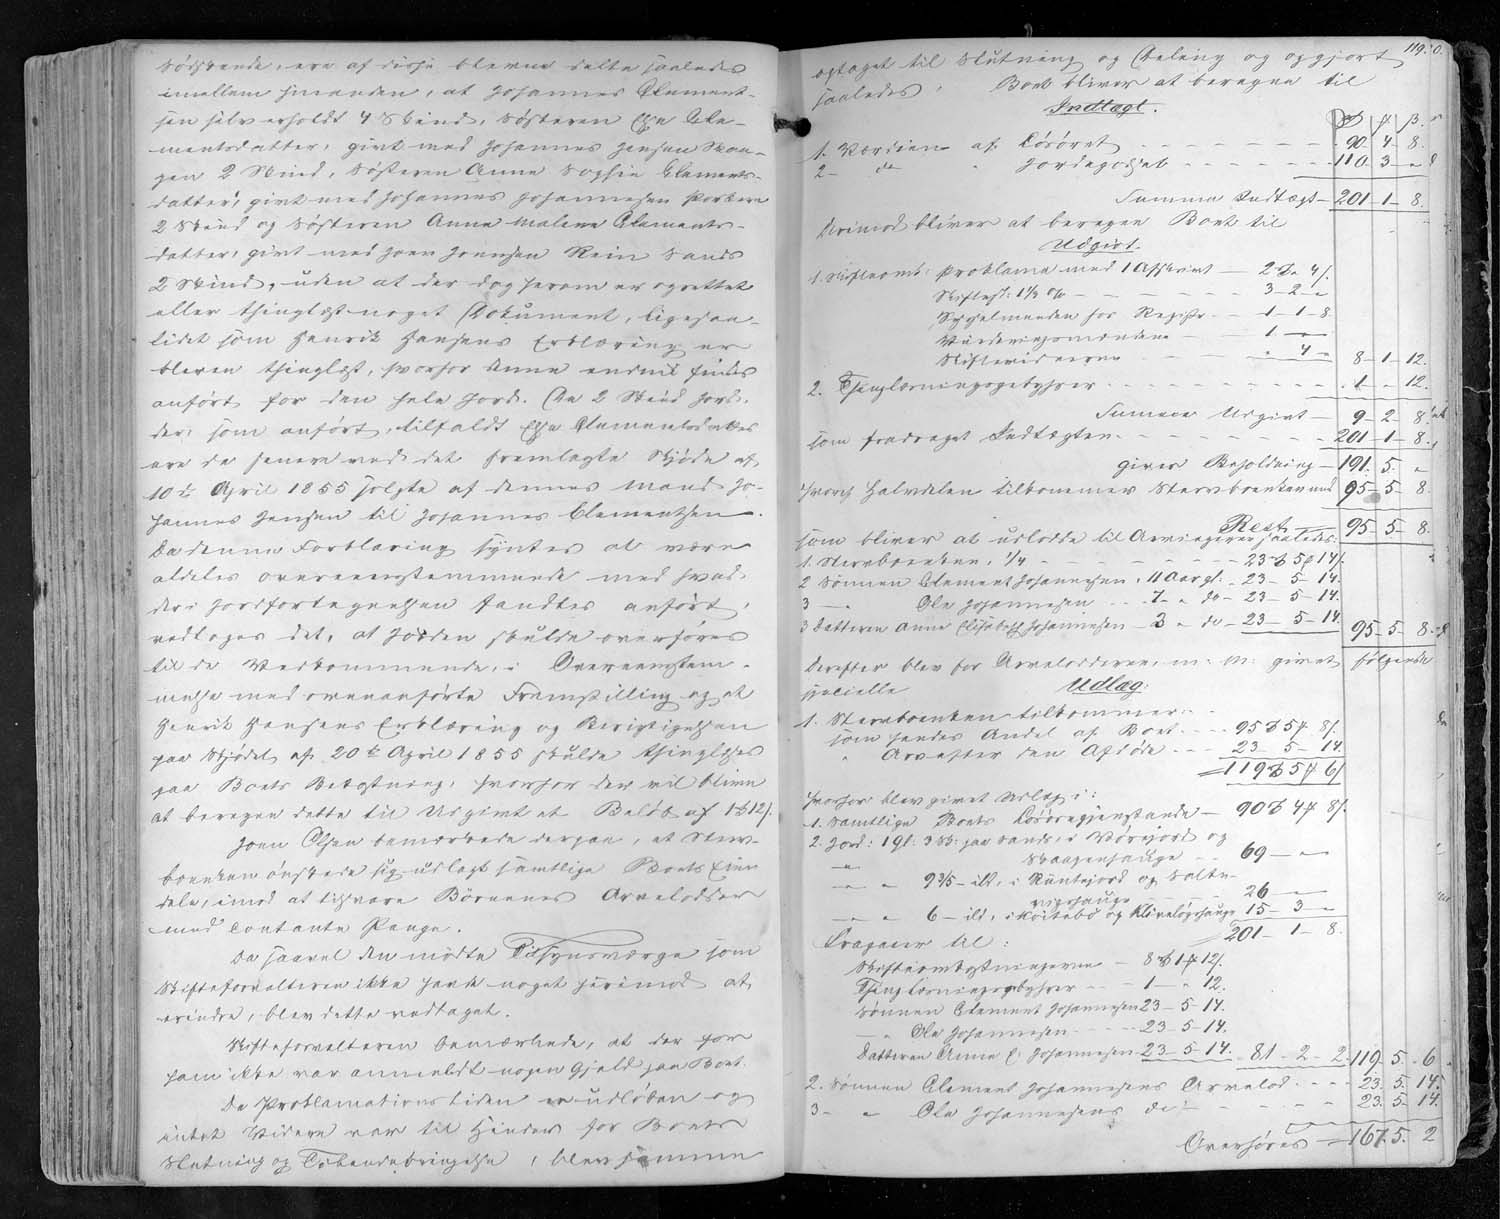 Sødskende, ere af disse blevne delte saaledes
imellem hinanden, at Johannes Clement-
sen selv erholdt 4 Skind, Søsteren Else Cle-
mentsdatter, givt med Johannes Jensen Skaa-
gen 2 Skind, Søsteren Anne Sophie Clements-
datter, givt med Johannes Johannesen
2 Skind og Søsteren Anne Malene Clements-
datter, givt med Joen Joensen Rein Sands
2 Skind, uden at der dog herom er oprettet
eller thinglæst noget Dokument, ligesaa-
lidet som Henrik Hansens Erklæring er
bleven thinglæst, hvorfor denne endnu findes
anført for den hele Jord. De 2 Skind Jord,
der, som anført, tilfaldt Else Clementsdatter
ere da senere ved det fremlagte Skjøde af
10de April 1855 solgte af dennes Mand Jo-
hannes Jensen til Johannes Clementsen.
Da denne Forklaring syntes at være
aldeles overeensstemmende med hvad
der i Jordfortegnelsen fandtes anført,
vedtoges det, at Jorden skulde overføres
til de Vedkommende, i Overeensstem-
melse med ovenanførte Fremstilling og at
Henrik Hansens Erklæring og Berigtigelsen
paa Skjødet af 20de April 1855 skulde thinglæses
paa Boets Bekostning, hvorfor der vil blive
at beregne dette til Udgivt et Beløb af 1 12/.
Joen Olsen bemærkede derpaa, at Sterv-
boenken ønskede sig udlagt samtlige Boets Eien-
dele, imod at tilsvare Børnenes Arvelodder
med contante Penge.
Da saavel den mødte Tilsynsværge som
Skifteforvalteren ikke havde noget herimod at
erindre, blev dette vedtaget.
Skifteforvalteren bemærkede, at der for
ham ikke var anmeldt nogen Gjæld paa Boet.
Da Proklamationstiden er udløben og
intet Videre var til Hinder for Boets
Slutning og Tilendebringelse, blev samme
119. 0.
optaget til Slutning og Deling og opgjort
saaledes, Boet bliver at beregne til
Indtægt.
1. Værdien af Løsøret - - - 90 - 4 - 8.
2 - do " Jordegodset - - - 110. 3 - "
Summa Indtægt - 201 - 1 - 8.
Derimod bliver at beregne Boet til
Udgivt.
1. Skifteomk: Proklama med 1 Afskrivt - 2 " 4/.
Skiftesl: 1 1/3 % - - - 3 - 2 - "
Sysselmanden for Registr - - 1 - 1 - 8
Vurderingsmændene - 1 -
Skiftevidnerne " - 4 - " 8 - 1 - 12.
2. Thinglæsningsgebyhrer - - - 1 - " - 12.
Summa Udgivt - 9 - 2 - 8.
som fradraget Indtægten - - - 201 - 1 - 8.
giver Beholdning - 191. 5. "
hvoraf Halvdelen tilkommer Stervboenken med 95 - 5 - 8.
Rest - 95 - 5 - 8.
som bliver at udlodde til Arvingerne saaledes:
1. Stervboenken, 1/4 - - - 23 5 14/.
2 Sønnen Clement Johannesen, 11 Aar gl. - 23 - 5 - 14.
3 - " Ole Johannesen - - 7 - " do - 23 - 5 - 14.
3 Datteren Anne Elisabeth Johannesen - 3 " do - 23 - 5 - 14. 95 - 5 - 8.
Derefter blev for Arvelodderne m: M: givet følgende
specielle Udlæg:
1. Stervboenken tilkommer:
som hendes Andel af Boet - - - 95 5 8/.
" Arv efter den Afdøde - - - 23 - 5 - 14.
= 119 5 6/
hvorfor blev givet Udlæg i:
1. Samtlige Boets Løsøregjenstande - 90 4 8/.
2. Jord: 1 gl: 3 Sk: paa Sands, i Vørejord og
" Skaagenhauge - - 69 - "
- " " 9 3/5 - ild, i Nüntejord og Salte-
vigshauge - - 26 - "
- " " 6 - ild, i Køitebø og Kliveløghauge 15 - 3 - "
= 201 - 1 - 8.
Dragener til:
Skifteomkostningerne - 8 1 12/.
Thinglæsningsgebyhrer - - 1 - " 12.
Sønnen Clement Johannesen 23 - 5 - 14.
- " Ole Johannesen - - - 23 - 5 - 14.
Datteren Anne E. Johannesen - 23 - 5 - 14. - 81 - 2 - 2. 119. 5 - 6
2. Sønnen Clement Johannesens Arvelod - - - 23. 5. 14.
3 - " Ole Johannesens do - - - 23. 5 - 14.
Overføres = 167. 5. 2